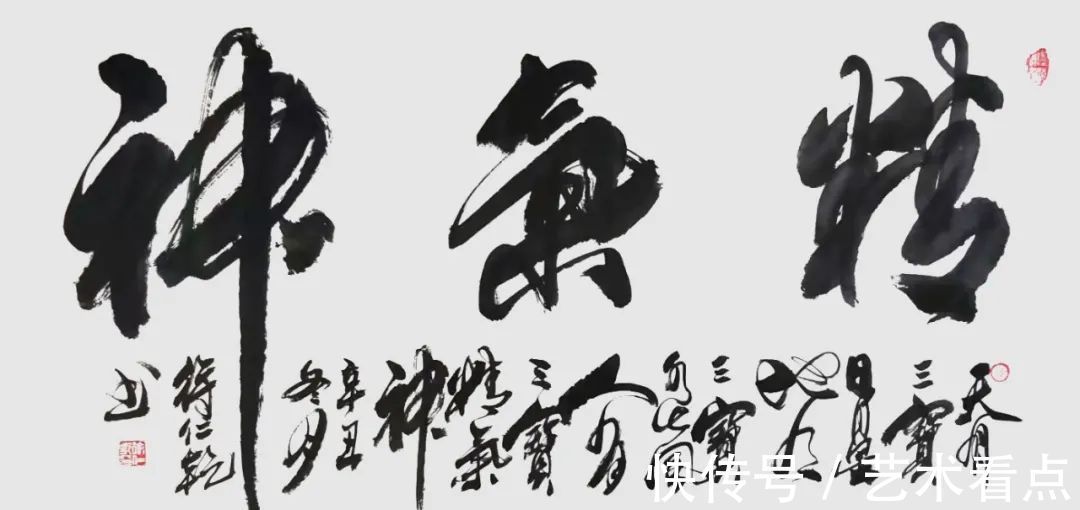 精氣神
天有
三寶
日月星
地有
三寶
水火風
人有
三寶
精氣
神
辛丑
冬月
仁乾
书
快传号 / 艺术看点